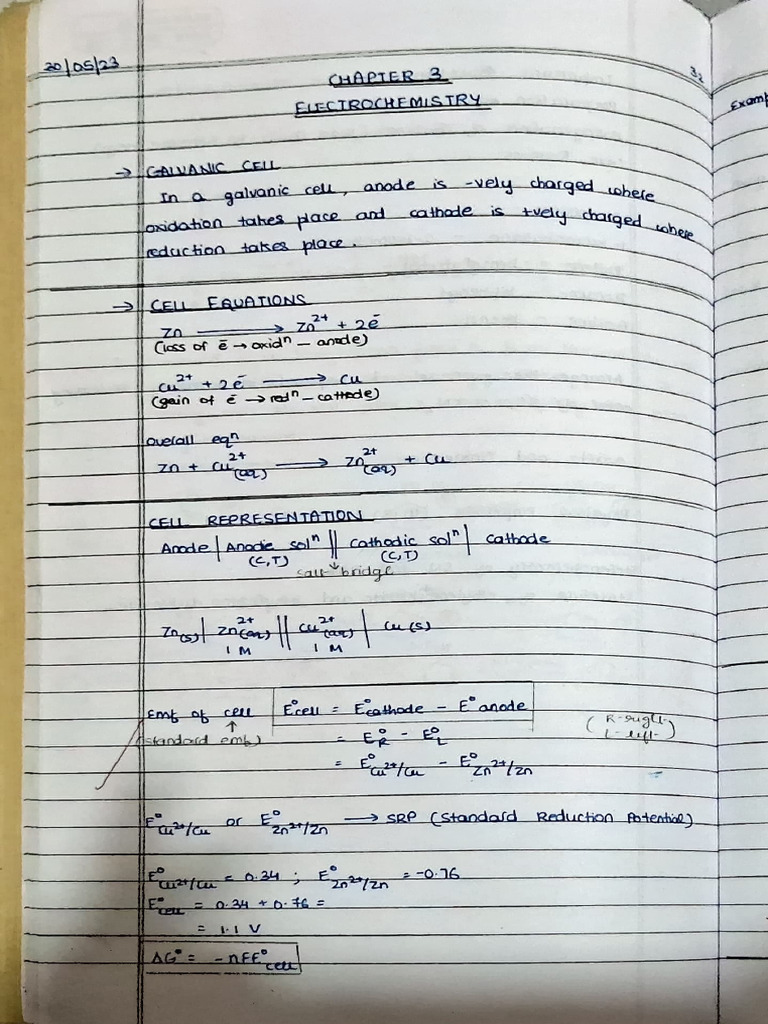 20/05/23
32
CHAPTER 3
ELECTROCHEMISTRY
Examp
→ GALVANIC CELL
In a galvanic cell, anode is -vely charged where
oxidation takes place and cathode is +vely charged where
reduction takes place.
→ CELL EQUATIONS
Zn ⟶ Zn²⁺ + 2ē
(loss of ē → oxidⁿ - anode)
Cu²⁺ + 2ē ⟶ Cu
(gain of ē → redⁿ - cathode)
overall eqⁿ
Zn + Cu²⁺(aq) ⟶ Zn²⁺(aq) + Cu
CELL REPRESENTATION
Anode | Anodic solⁿ || Cathodic solⁿ | Cathode
(C,T) (C,T)
salt bridge
Zn(s) | Zn²⁺(aq) || Cu²⁺(aq) | Cu(s)
1 M 1 M
Emf of cell E°cell = E°cathode - E°anode
(standard emf) = E°R - E°L (R-right L-left)
= E°Cu²⁺/Cu - E°Zn²⁺/Zn
E°Cu²⁺/Cu or E°Zn²⁺/Zn ⟶ SRP (Standard Reduction Potential)
E°Cu²⁺/Cu = 0.34 ; E°Zn²⁺/Zn = -0.76
E°cell = 0.34 + 0.76 =
= 1.1 V
ΔG° = -nFE°cell